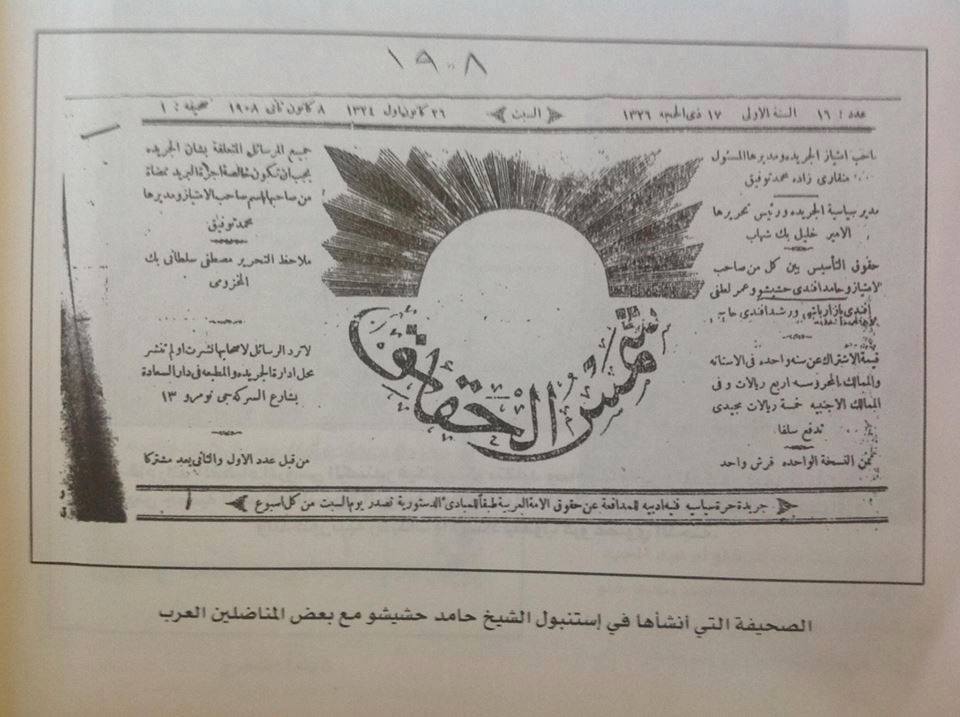 ١٩٠٨
عدد : ١٦ السنة الاولى ١٧ ذى الحجه ١٣٢٦ السبت ٢٦ كانون اول ١٣٢٤ ٨ كانون ثانى ١٩٠٨ صحيفه : ١
صاحب امتياز الجريده ومديرها المسئول
منقارى زاده محمد توفيق
مدير سياسية الجريده ورئيس تحريرها
الامير خليل بك شهاب
حقوق التأسيس بين كل من صاحب
لامتياز وحامد افندى حشيشو وعمر لطفى
افندى بازارباشى ورشد افندى
قيمة الاشتراك عن سنه واحده فى الاستانه
والممالك المحروسه اربع ريالات وفى
الممالك الاجنبيه خمسة ريالات مجيدى
تدفع سلفا
ثمن النسخة الواحده قرش واحد
شمس الحقائق
جميع الرسائل المتعلقة بشان الجريده
يجب ان تكون خالصة اجرة البريد ممضاة
من صاحبها باسم صاحب الامتياز ومديرها
محمد توفيق
ملاحظ التحرير مصطفى سلطانى بك
المخزومى
لا ترد الرسائل لاصحابها نشرت او لم تنشر
محل ادارة الجريده والمطبعه فى دار السعادة
بشارع السركه جى نومرو ١٣
من قبل عدد الاول والثانى يعد مشتركا
جريدة حرة سياسيه فنيه ادبيه للمدافعة عن حقوق الامة العربية طبقاً للمبادئ الدستورية تصدر يوم السبت من كل اسبوع
الصحيفة التي أنشأها في إستنبول الشيخ حامد حشيشو مع بعض المناضلين العرب